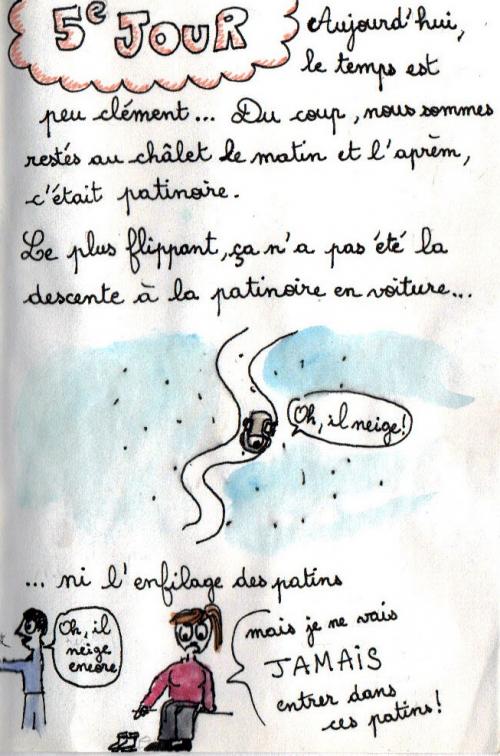 5e JOUR
Aujourd'hui,
le temps est
peu clément... Du coup, nous sommes
restés au châlet le matin et l'aprèm,
c'était patinoire.
Le plus flippant, ça n'a pas été la
descente à la patinoire en voiture...
Oh, il neige!
... ni l'enfilage des patins
Oh, il
neige
encore
mais je ne vais
JAMAIS
entrer dans
ces patins!